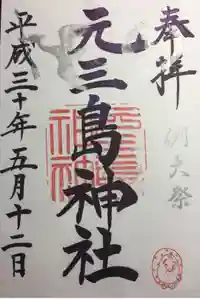 奉拝
例大祭
元三島神社
平成三十年五月十二日